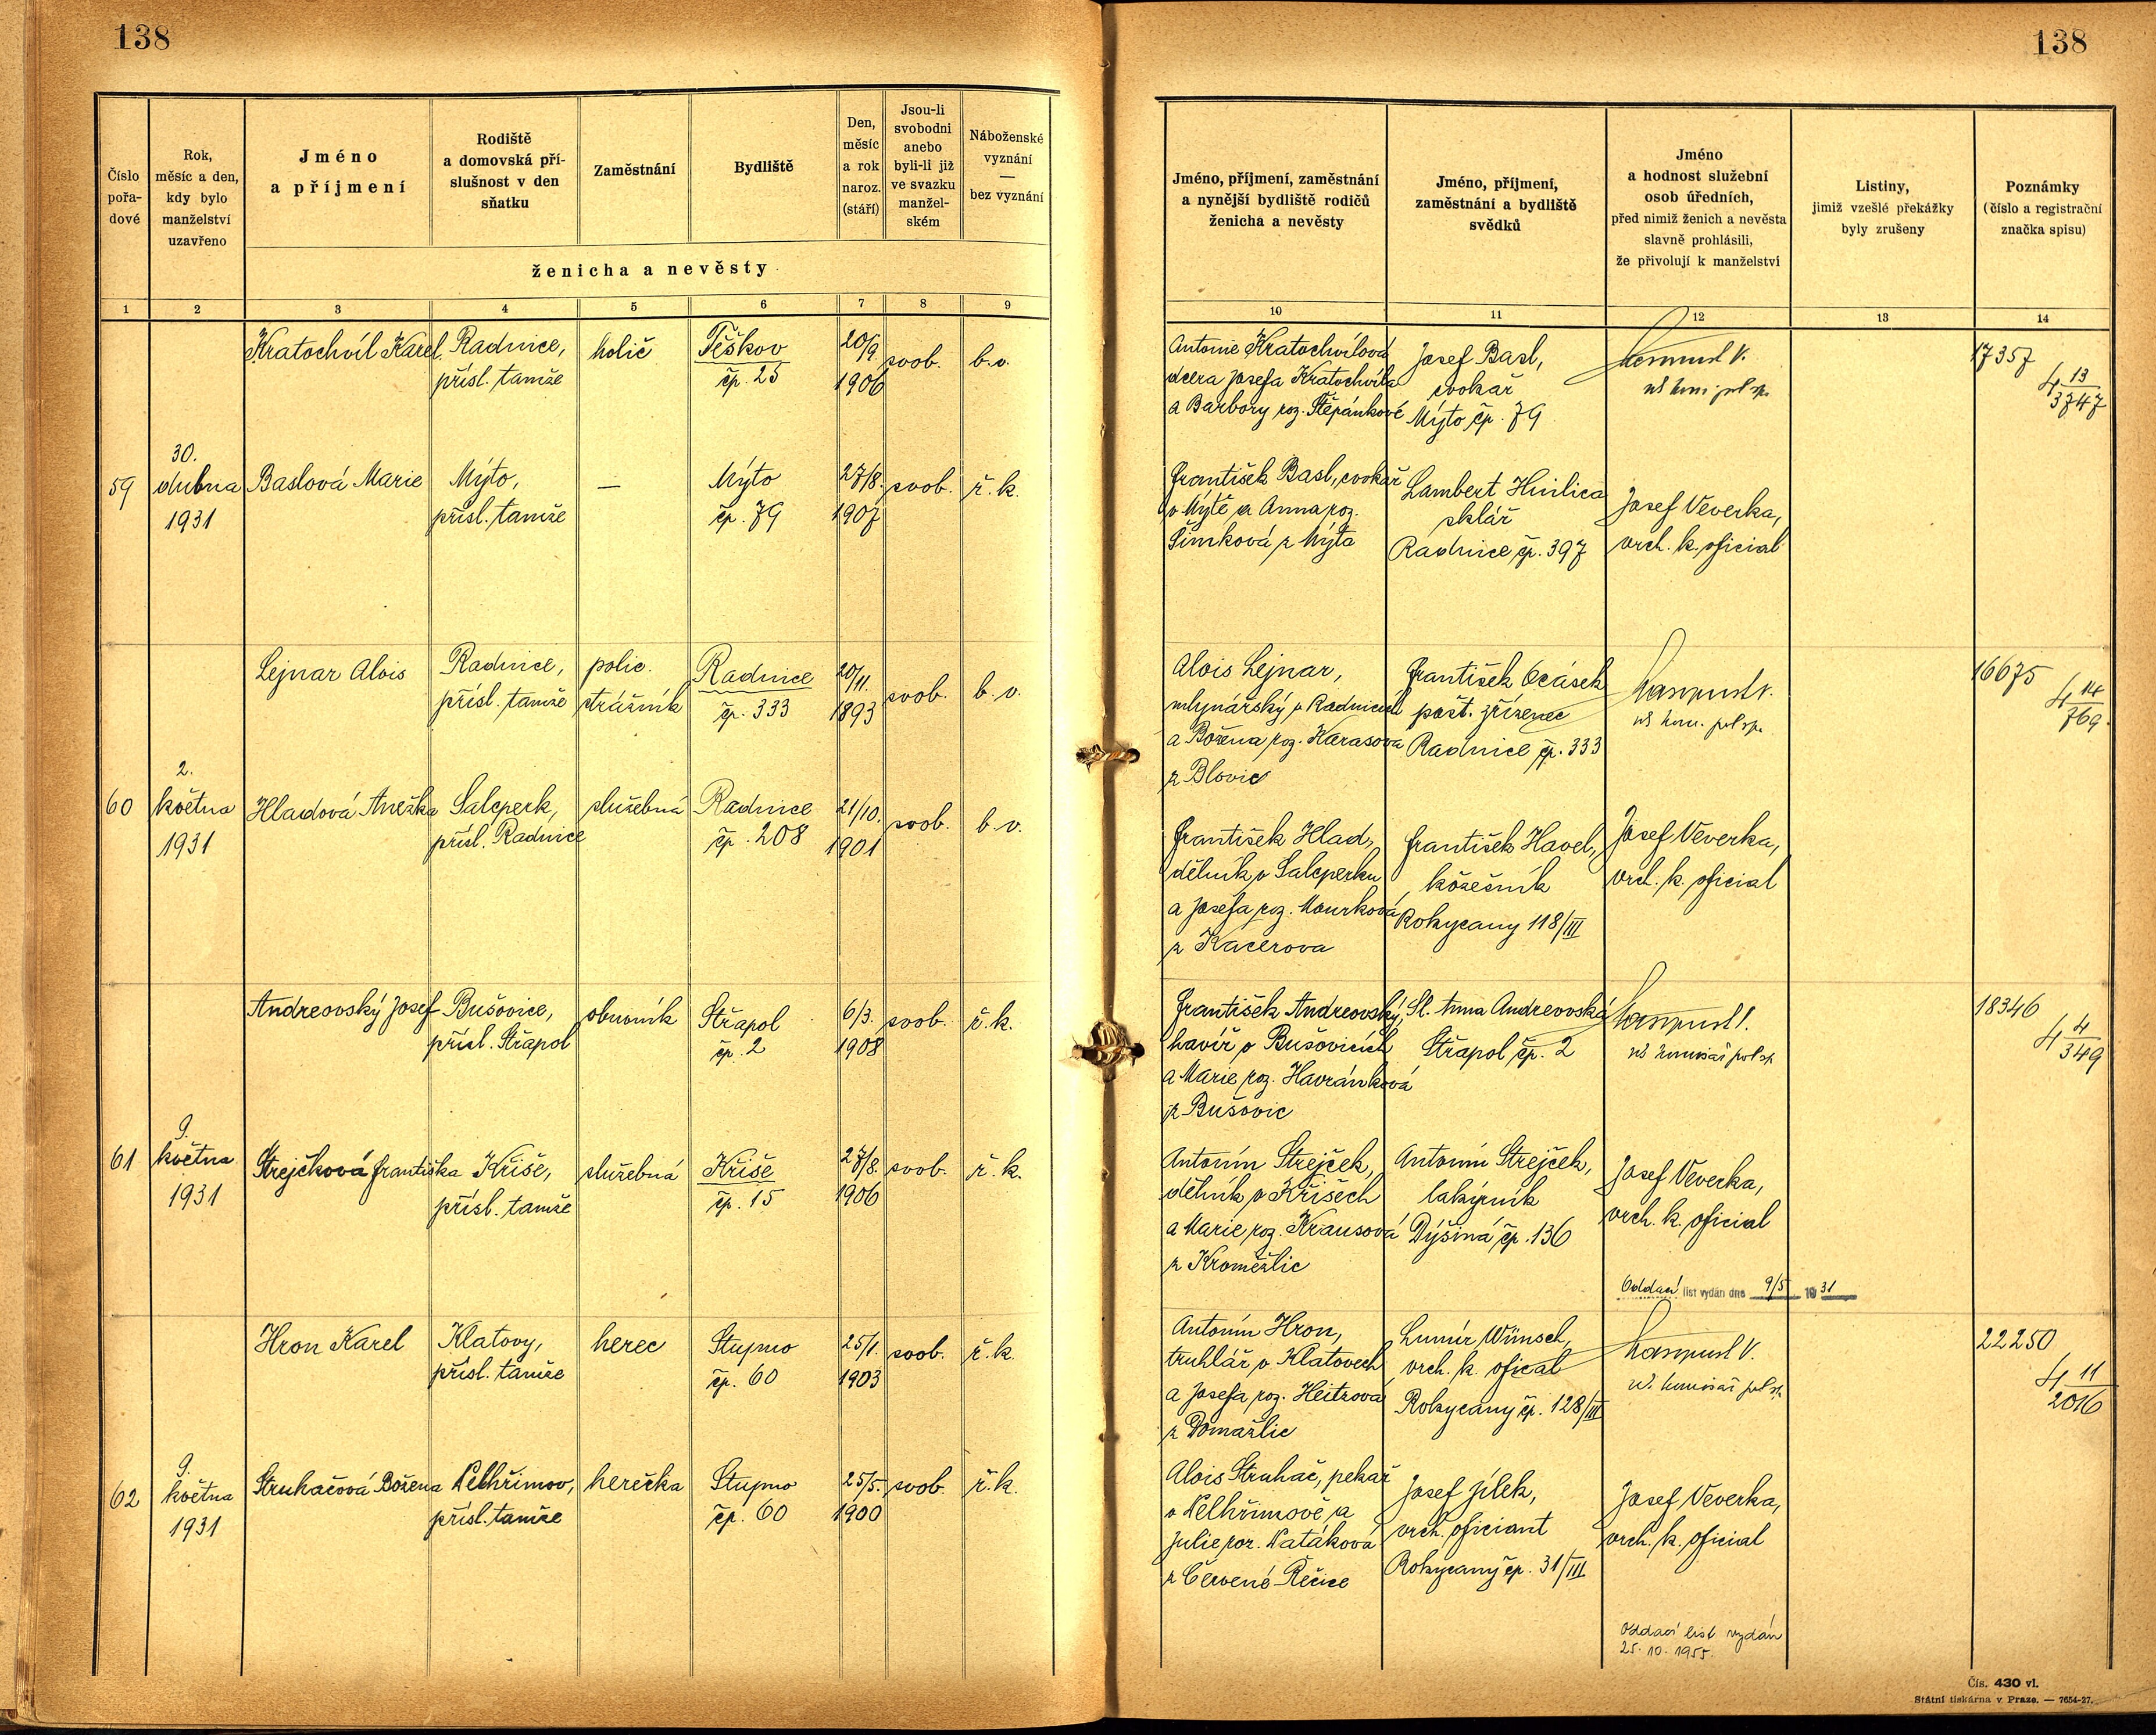 138
138
Číslo pořa-dové
Rok, měsíc a den, kdy bylo manželství uzavřeno
Jméno a příjmení
Rodiště a domovská pří-slušnost v den sňatku
Zaměstnání
Bydliště
Den, měsíc a rok naroz. (stáří)
Jsou-li svobodni anebo byli-li již ve svazku manžel-ském
Náboženské vyznání — bez vyznání
ženicha a nevěsty
Jméno, příjmení, zaměstnání a nynější bydliště rodičů ženicha a nevěsty
Jméno, příjmení, zaměstnání a bydliště svědků
Jméno a hodnost služební osob úředních, před nimiž ženich a nevěsta slavně prohlásili, že přivolují k manželství
Listiny, jimiž vzešlé překážky byly zrušeny
Poznámky (číslo a registrační značka spisu)
1 2 3 4 5 6 7 8 9 10 11 12 13 14
Kratochvíl Karel
Radnice,
přísl. tamže
holič
Těškov
čp. 25
20/9.
1906
svob.
b.v.
Antonie Kratochvílová
dcera Josefa Kratochvíla
a Barbory roz. Štěpánkové
Josef Basl,
cvokař
Mýto čp. 79
17357
4 13/3747
59
30.
dubna
1931
Baslová Marie
Mýto,
přísl. tamže
—
Mýto
čp. 79
27/8.
1907
svob.
ř.k.
František Basl, cvokař
v Mýtě a Anna roz.
Šimková z Mýta
Lambert Hnilica
sklář
Radnice čp. 397
Josef Veverka,
vrch. k. oficial
Lejnar Alois
Radnice,
přísl. tamže
polic.
strážník
Radnice
čp. 333
20/11.
1893
svob.
b.v.
Alois Lejnar,
mlynářský v Radnicích
a Božena roz. Karasova
z Blovic
František Ocásek
pošt. zřízenec
Radnice čp. 333
16675
4 14/769.
60
2.
května
1931
Hladová Anežka
Salcperk,
přísl. Radnice
služebná
Radnice
čp. 208
21/10.
1901
svob.
b.v.
František Hlad,
dělník v Salcperku
a Josefa roz. Mourková
z Kacerova
František Havel,
kožešník
Rokycany 118/III
Josef Veverka,
vrch. k. oficial
Andreovský Josef
Bušovice,
přísl. Střapol
obuvník
Střapol
čp. 2
6/3.
1908
svob.
ř.k.
František Andreovský,
havíř v Bušovicích
a Marie roz. Havránková
z Bušovic
Sl. Anna Andreovská
Střapol čp. 2
18346
4 4/349
61
9.
května
1931
Strejčková Františka
Kříše,
přísl. tamže
služebná
Kříše
čp. 15
27/8.
1906
svob.
ř.k.
Antonín Strejček,
dělník v Kříšech
a Marie roz. Krausová
z Kroměžlic
Antonín Strejček,
lakýrník
Dýšina čp. 136
Josef Veverka,
vrch. k. oficial
Oddací list vydán dne 9/5 1931
Hron Karel
Klatovy,
přísl. tamže
herec
Stupno
čp. 60
25/1.
1903
svob.
ř.k.
Antonín Hron,
truhlář v Klatovech
a Josefa roz. Heitzova
z Domažlic
Lumír Wünsch,
vrch. k. oficial
Rokycany čp. 128/III
22250
4 11/2016
62
9.
května
1931
Struhačová Božena
Pelhřimov,
přísl. tamže
herečka
Stupno
čp. 60
25/5.
1900
svob.
ř.k.
Alois Struhač, pekař
v Pelhřimově a
Julie roz. Patáková
z Červené Řečice
Josef Jílek,
vrch. oficiant
Rokycany čp. 31/III
Josef Veverka,
vrch. k. oficial
Oddací list vydán
25.10.1955.
Čís. 430 vl.
Státní tiskárna v Praze. — 7654-27.